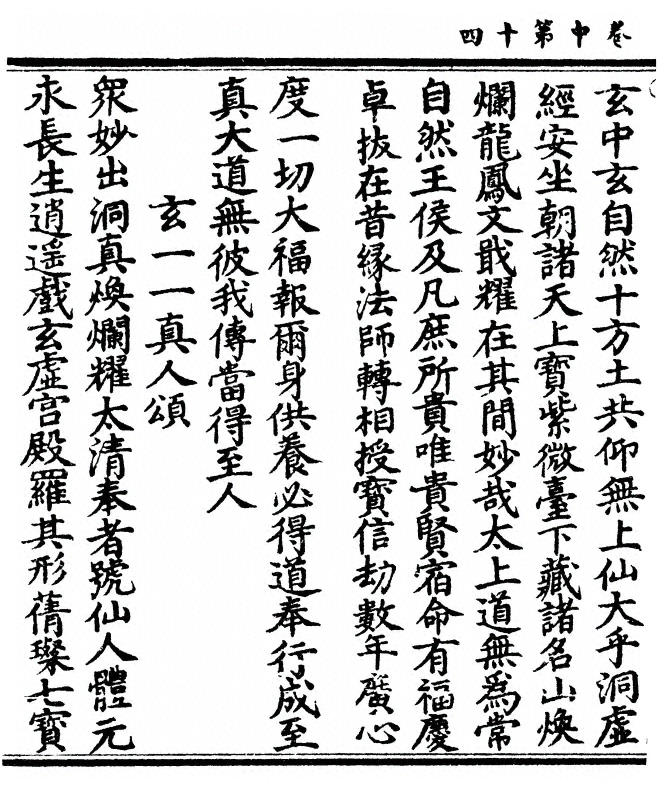 卷中第十四
玄中玄自然十方土共仰無上仙大乎洞虛
經安坐朝諸天上寶紫微臺下藏諸名山煥
爛龍鳳文戢耀在其間妙哉太上道無爲常
自然王侯及凡庶所貴唯貴賢宿命有福慶
卓拔在昔緣法師轉相授寶信劫數年廣心
度一切大福報爾身供養必得道奉行成至
真大道無彼我傳當得至人
玄一一真人頌
眾妙出洞真煥爛耀太清奉者號仙人體元
永長生逍遙戲玄虛宮殿羅其形蒨璨七寶